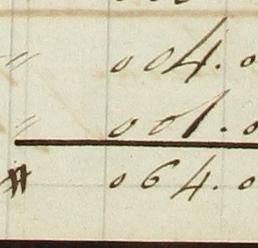 " 004.0
" 001.0
# 064.0